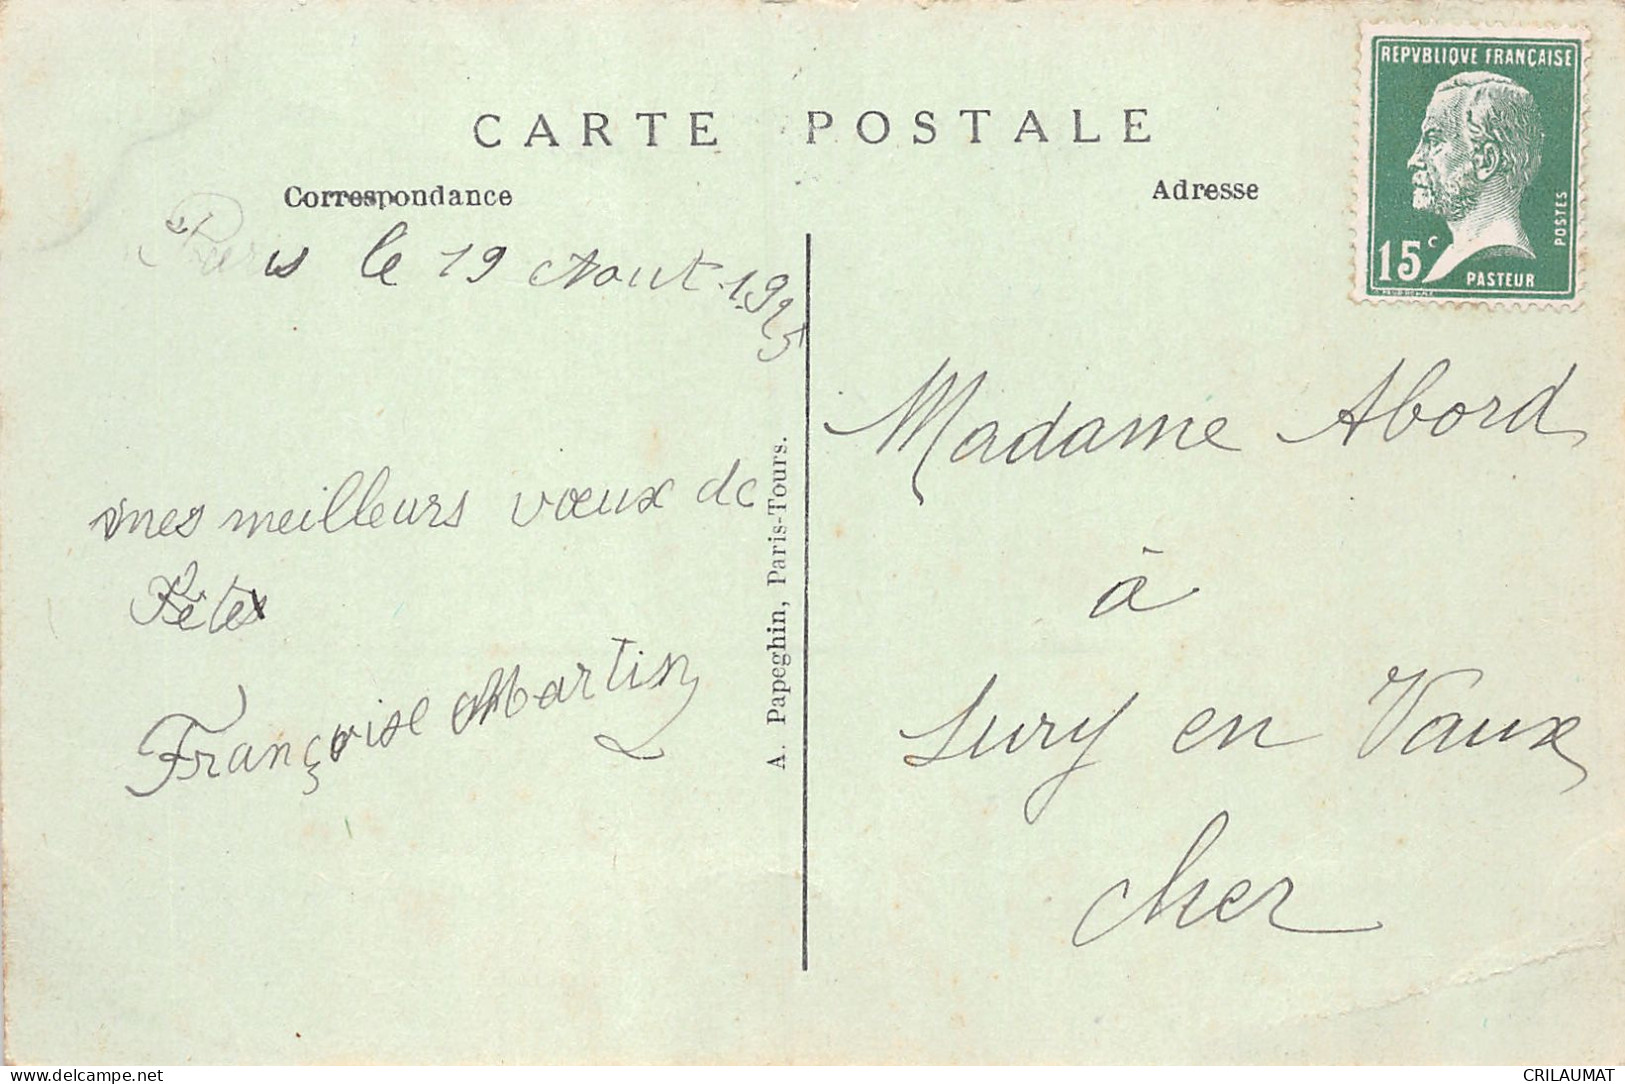 CARTE POSTALE
Correspondance
Adresse
REPVBLIQVE FRANÇAISE
15 c
POSTES
PASTEUR
Paris le 19 Aout 1925
mes meilleurs vœux de
Fête
Françoise Martin
A. Papeghin, Paris-Tours.
Madame Abord
à
Sury en Vaux
Cher
delcampe.net
CRILAUMAT